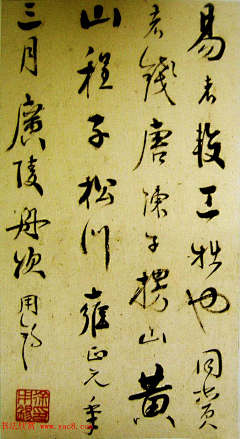 易者 工拙也 同賞
者錢唐陳子楞山黃
山程子松門 雍正元年
三月廣陵舟次 用錫
书法欣赏 www.yac8.com